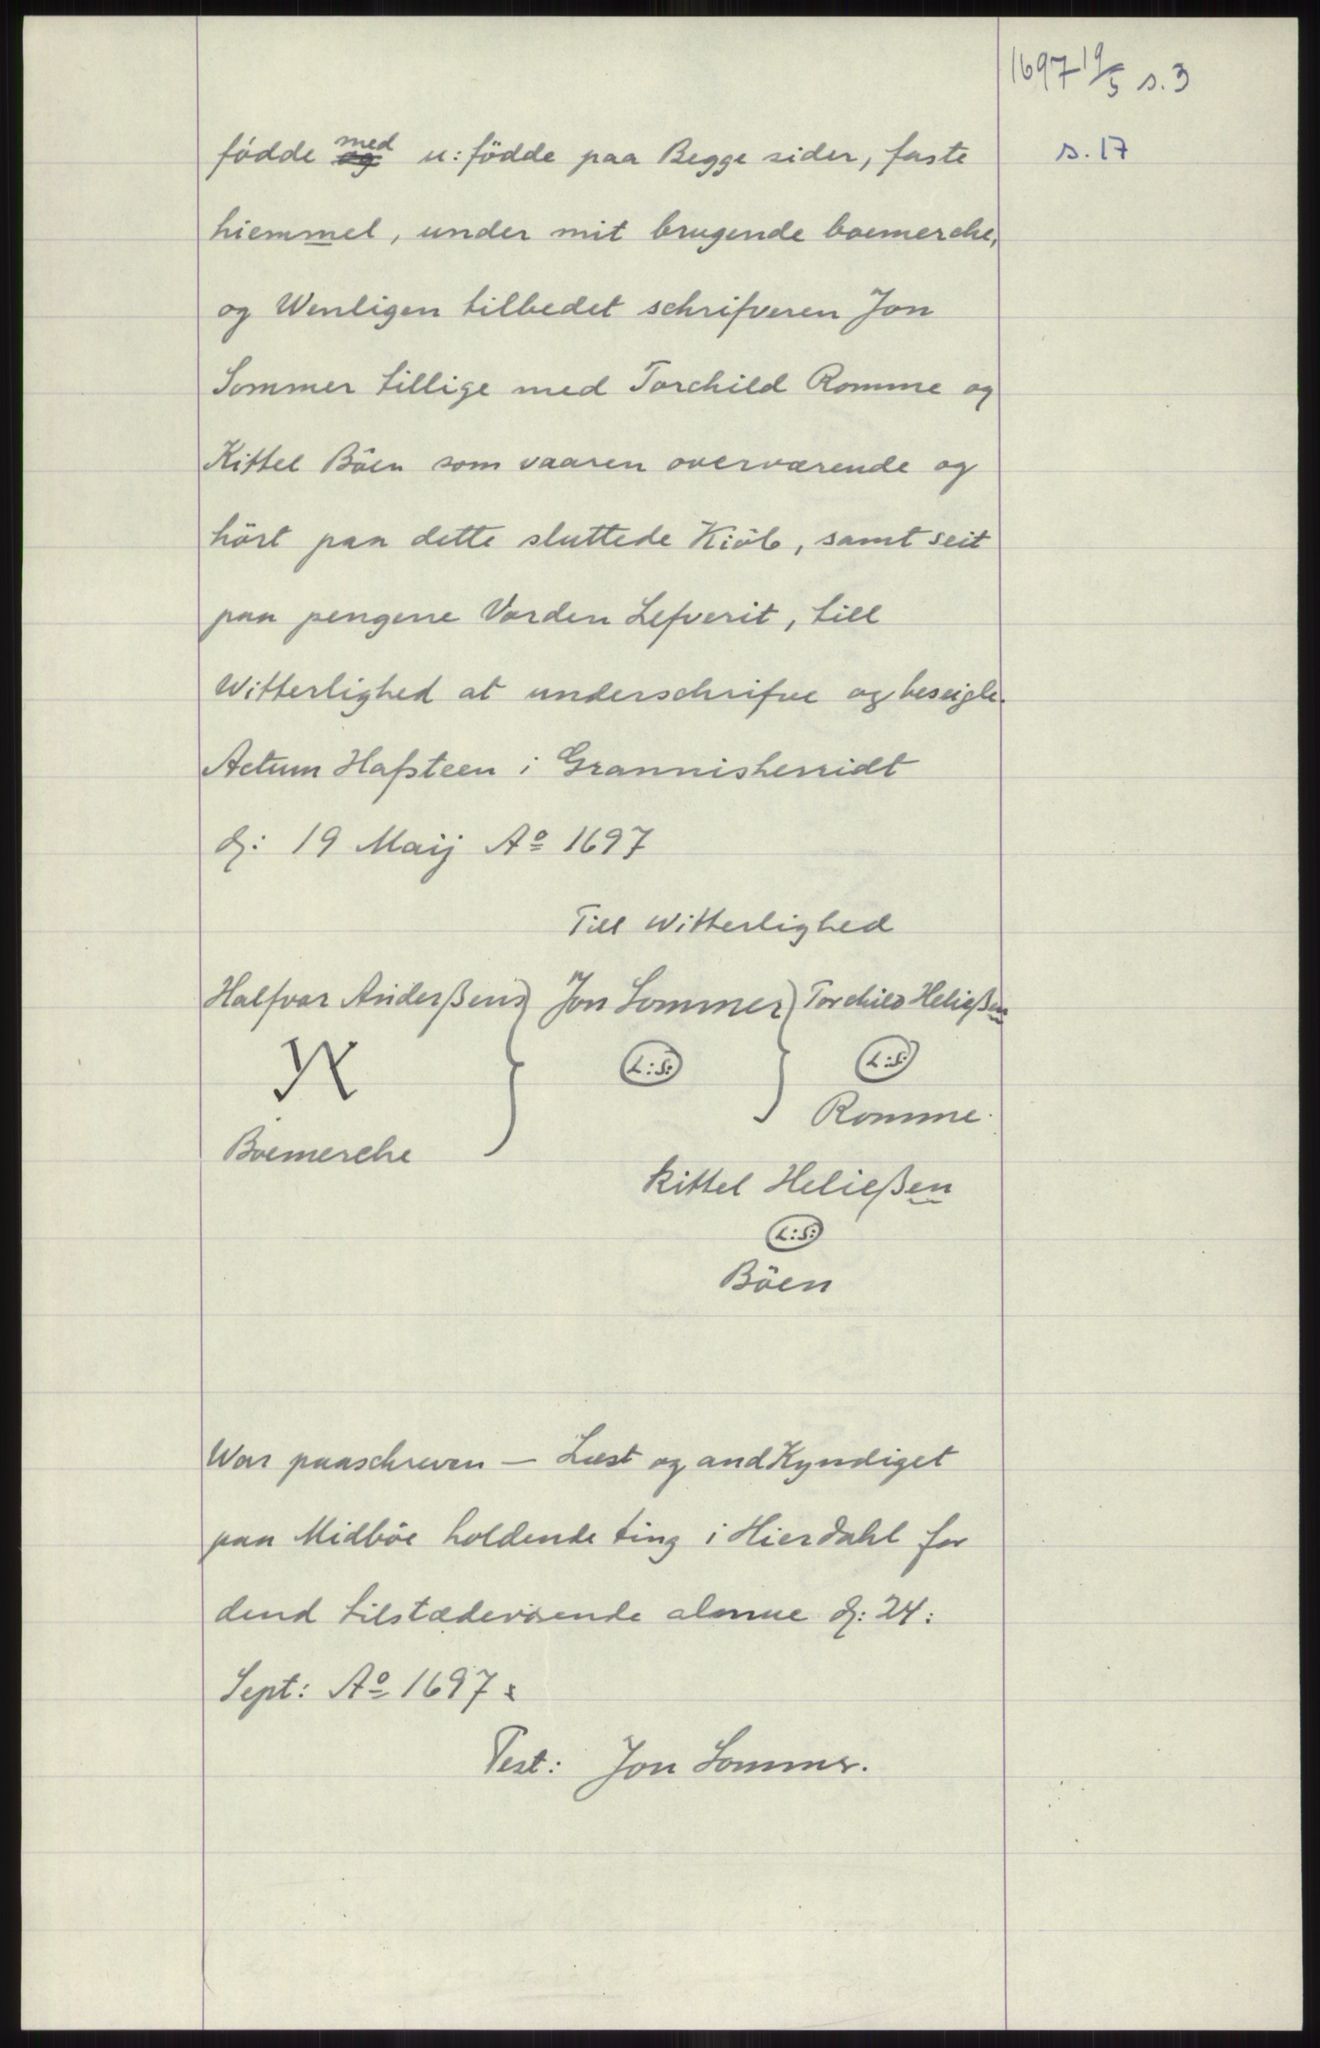 1697 19/5 s. 3
s. 17
födde ~~og~~ med u: födde paa Begge sider, faste
hiemmel, under mit brugende boemerche,
og Wenligen tilbedet schrifveren Jon
Sommer tillige med Torchild Romme og
Kittel Böen som vaaren overværende og
hört paa dette sluttede Kiöb, samt seit
paa pengene Vorden Lefverit, till
Witterlighed at underschrifve og beseigle.
Actum Hafsteen i Grannisherridt
d: 19 Maij Aº 1697
Till Witterlighed
Halfvor Anderßens Jon Sommer Torchild Heließen
L:S: L:S:
Romme
Boemerche
Kittel Heließen
L:S:
Böen
War paaschreven — Læst og andKyndiget
paa Midböe holdende ting i Hierdahl for
dend tilstædeværende almue d: 24:
Sept: Aº 1697 :
Test: Jon Sommer.